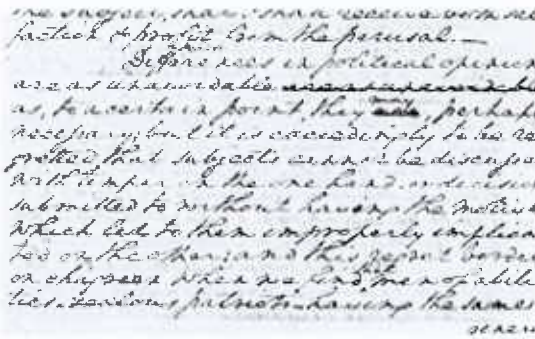 the subject, that I shall receive both sat
faction & profit from the perusal.—
Differences in political opinion
are as unavoidable
as, to a certain point, they perhap
necessary; but it is exceedingly to be re
gretted that subjects cannot be discuss
with temper on the one hand, or decisio
submitted to without having the motive
which led to them improperly implica
ted on the other: and this regret border
on chagreen when we find men of abili
ties, zealous patriots, having the same
gener